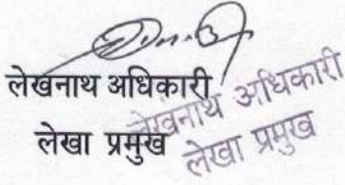 लेखनाथ अधिकारी
लेखा प्रमुख
लेखनाथ अधिकारी
लेखा प्रमुख